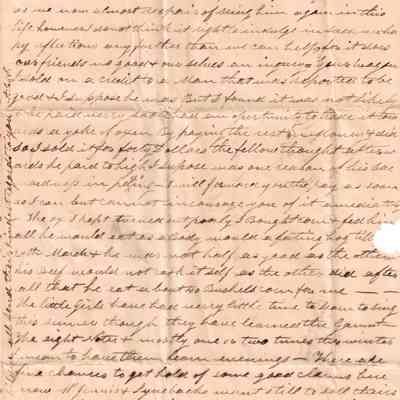 as we now almost despair of seeing him again in this
life however do not think it right to indulge in such
py reflections any further than we can help for it does
our friends no good & our selves an injury Your waggon
I sold on a credit to a man that was reported to be
good & I suppose he was But I found it was not likely
to be paid very soon had an opertunity to take it to
wards a yoke of oxen By paying the rest & did
so I sold it for forty Dollars the fellow thought after
ards he paid to high I supose was one reason of his
I will forward you the pay as soon
as I can but cannot incourage you of it immediately
The ox I kept turned out poorly I bought corn & fed him
all he would eat as a body would a fating hog till
March & he was not half as good as the other
his beef would not sell itself as the other did after
all that he eat about 20 Bushels corn for me
The little Girls have had verry little time to learn to sing
this summer though they have learned the Gamut
The eight Notes & mostly one or two tunes this winter
I mean to have them learn evenings – There are
fine chances to get hold of some good claims here
now & Lynebacks want still to sell theirs